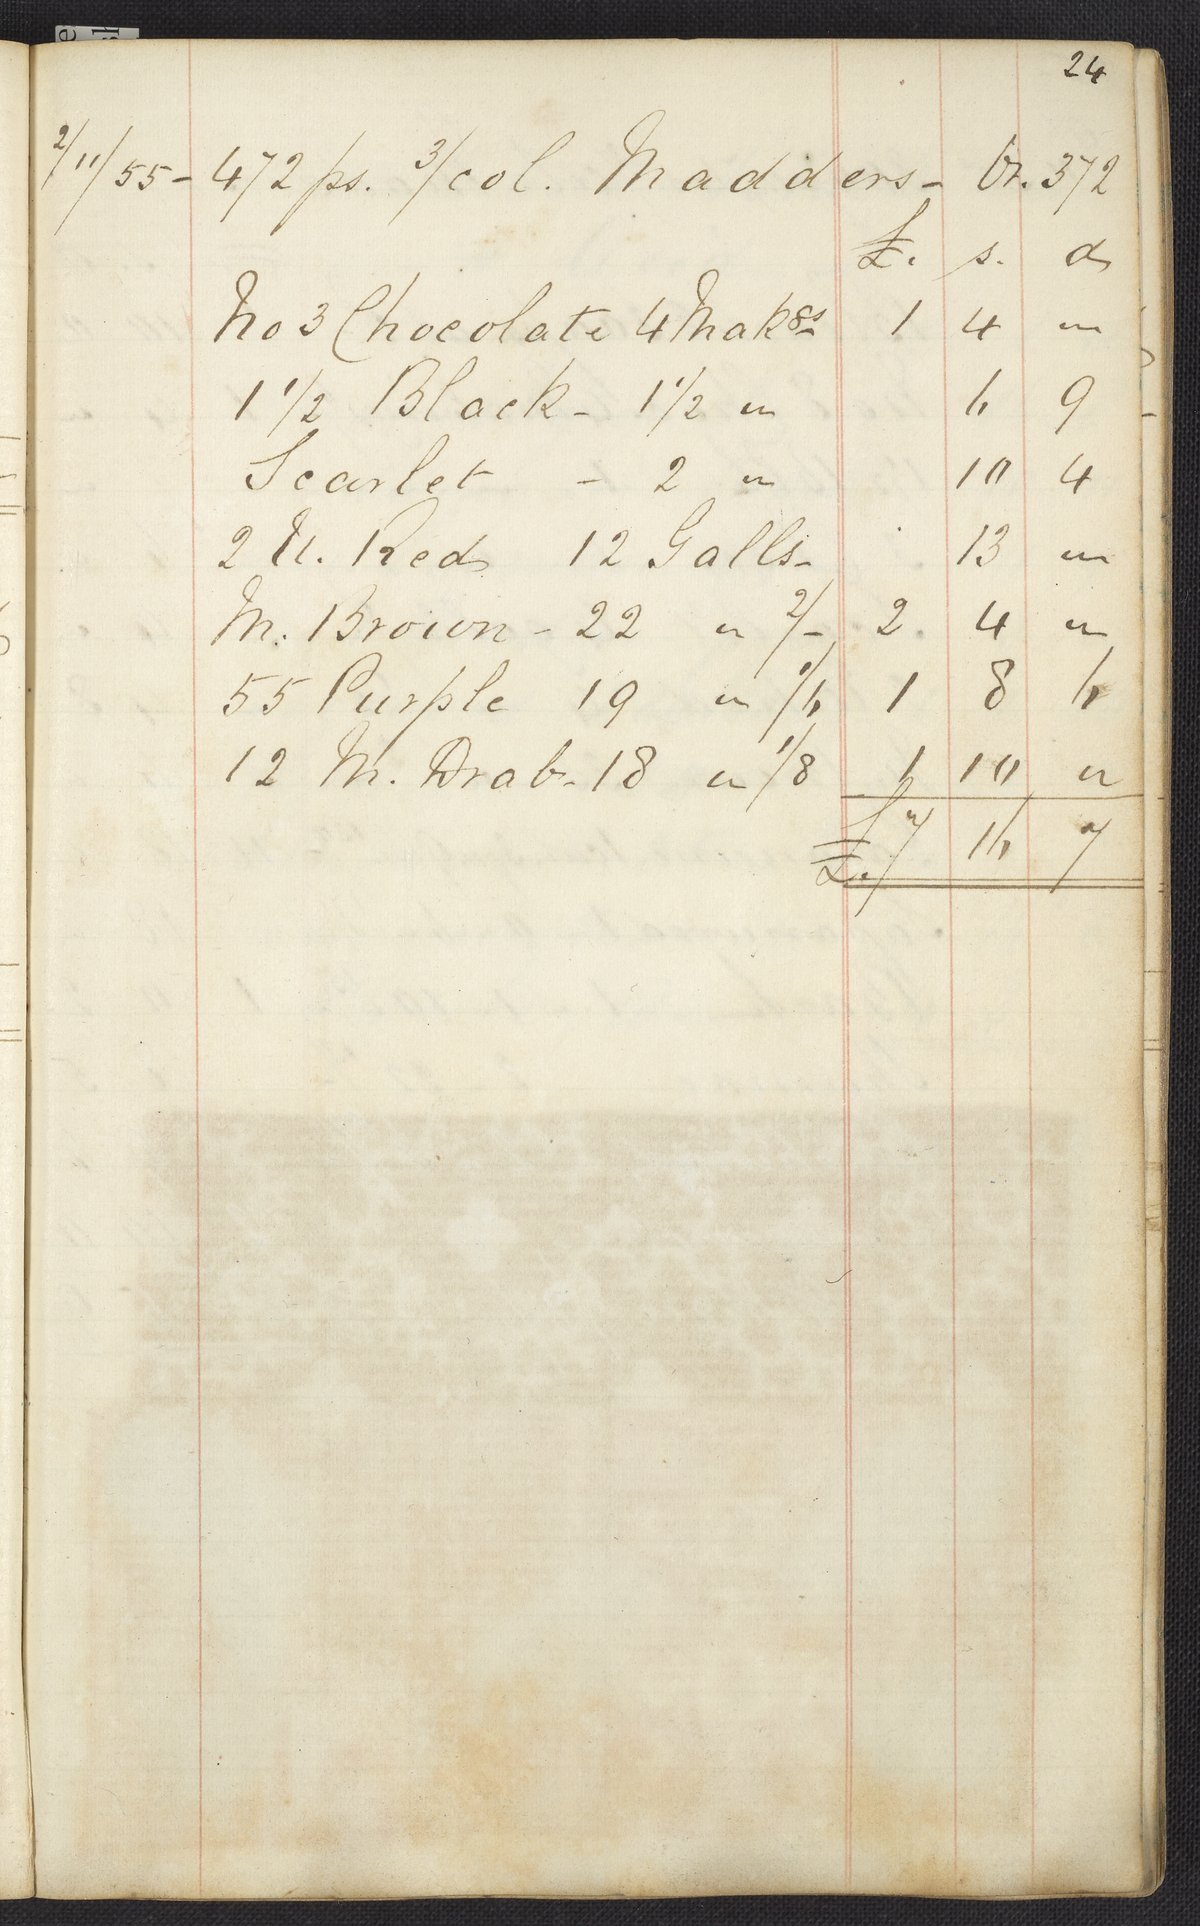 24
2/11/55 - 472 ps. 3/col. Madders - 372
£. s. d
No 3 Chocolate 4 Makgs 1 4 "
1 1/2 Black - 1 1/2 " 6 9
Scarlet - 2 " 10 4
2 N. Red 12 Galls - 13 "
M. Brown - 22 " 2/- 2 4 "
55 Purple 19 " 1/6 1 8 6
12 M. Drab - 18 " 1/8 1 10 "
£. 7 16 7